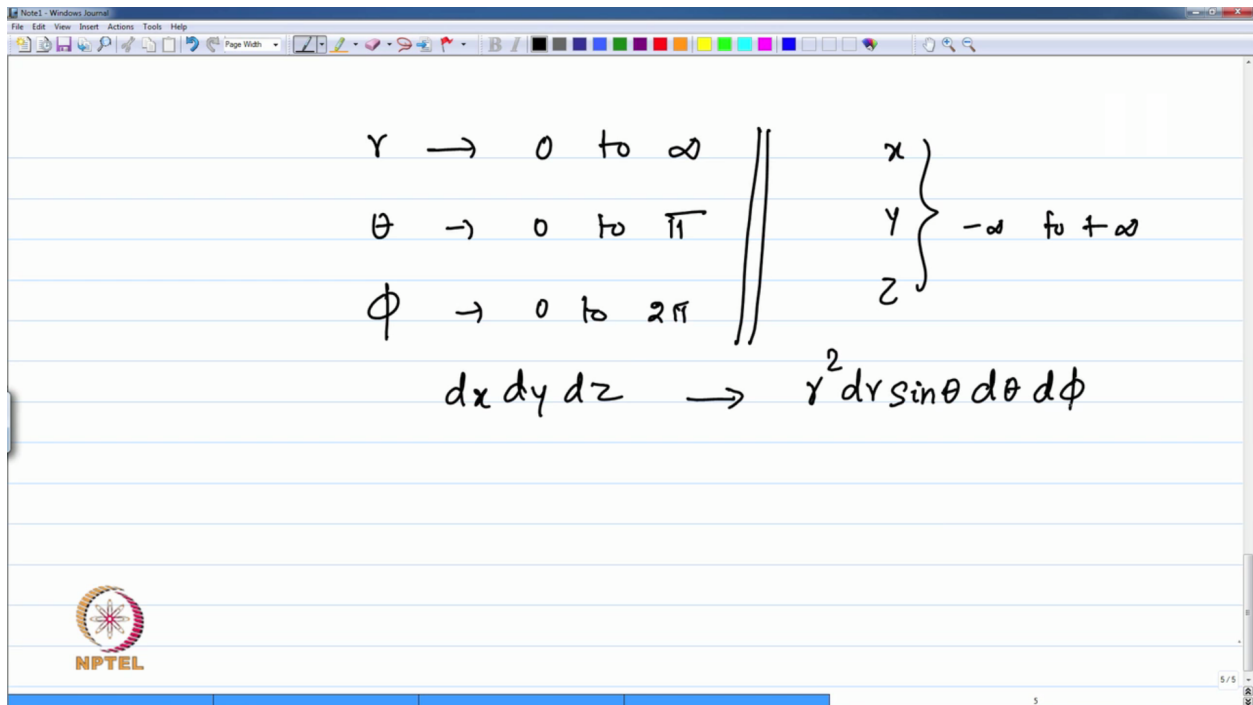 Note1 - Windows Journal
File Edit View Insert Actions Tools Help
Page Width B I
r → 0 to ∞ x
θ → 0 to π y } -∞ to +∞
ϕ → 0 to 2π z
dx dy dz → r² dr sinθ dθ dϕ
NPTEL
5/5
5